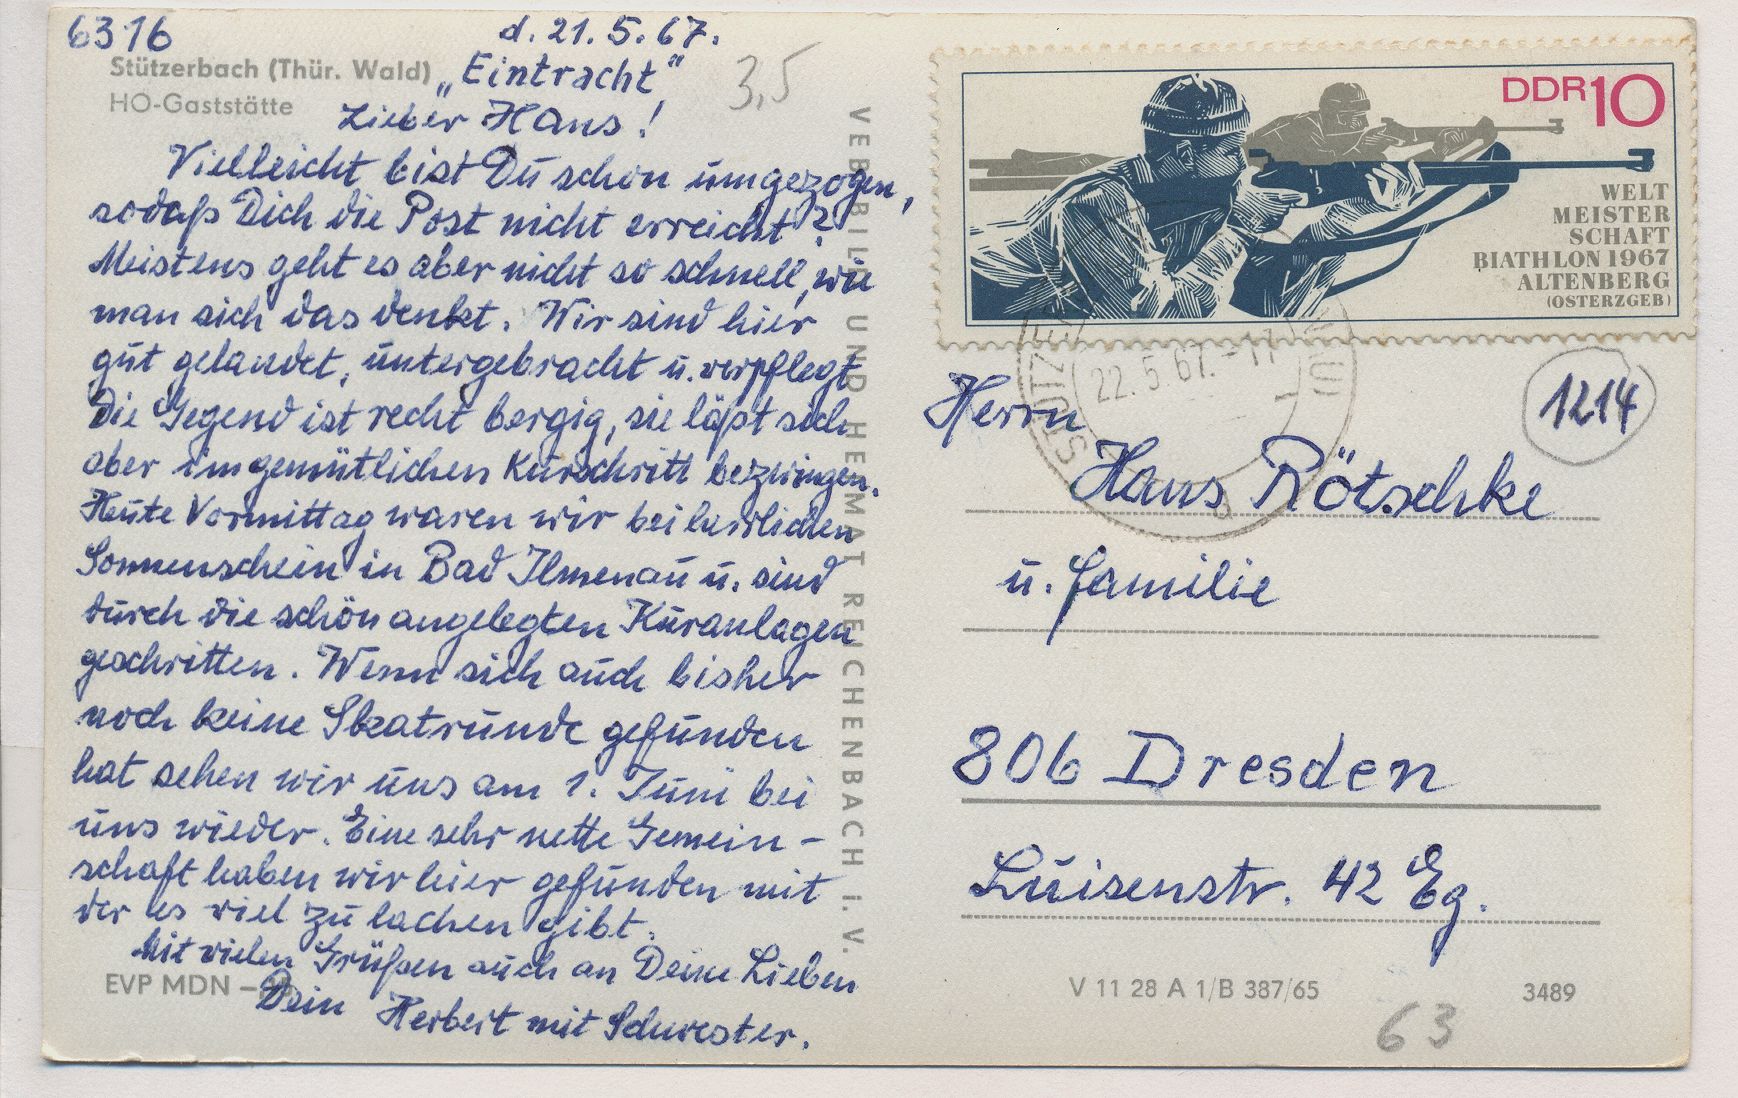 6316
d. 21. 5. 67.
Stützerbach (Thür. Wald) „Eintracht"
HO-Gaststätte
3,5
Lieber Hans!
Vielleicht bist Du schon umgezogen,
sodaß Dich die Post nicht erreicht?
Meistens geht es aber nicht so schnell, wie
man sich das denkt. Wir sind hier
gut gelandet, untergebracht u. verpflegt
Die Gegend ist recht bergig, sie läßt sich
aber im gemütlichen Kurschritt bezwingen.
Heute Vormittag waren wir bei herrlichen
Sonnenschein in Bad Ilmenau u. sind
durch die schön angelegten Kuranlagen
geschritten. Wenn sich auch bisher
noch keine Skatrunde gefunden
hat sehen wir uns am 1. Juni bei
uns wieder. Eine sehr nette Gemein-
schaft haben wir hier gefunden mit
der es viel zu lachen gibt.
Mit vielen Grüßen auch an Deine Lieben
EVP MDN
Dein Herbert mit Schwester.
VEB BILD UND HEIMAT REICHENBACH I. V.
DDR 10
WELT
MEISTER
SCHAFT
BIATHLON 1967
ALTENBERG
(OSTERZGEB)
STÜTZERBACH
22.5.67.-17
1214
Herrn
Hans Rötschke
u. Familie
806 Dresden
Luisenstr. 42 Eg.
V 11 28 A 1/B 387/65
3489
63